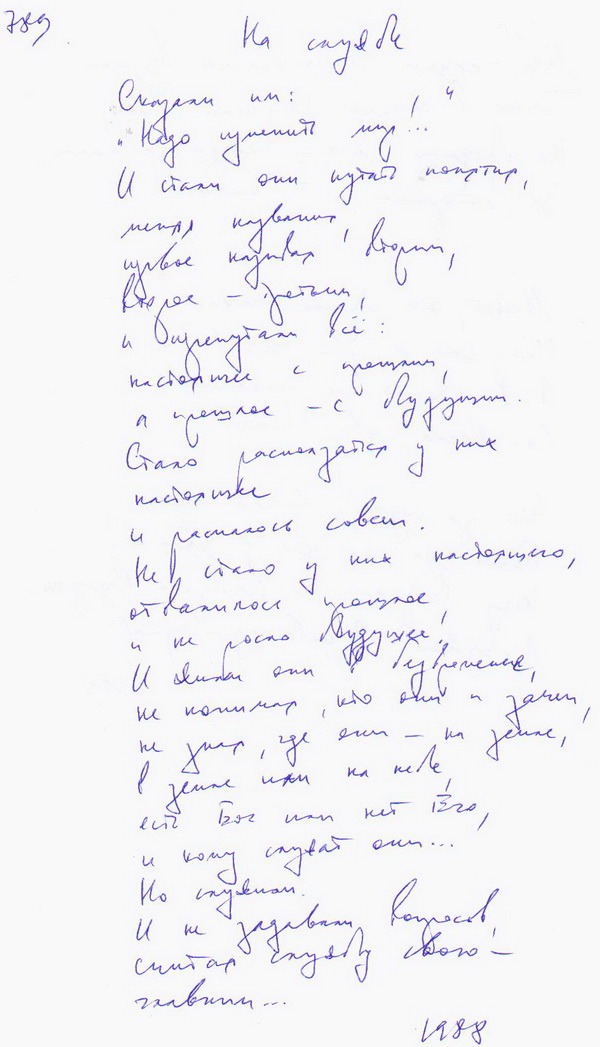 789
На службе
Сказали им:
"Надо изменить мир!..."
И стали они путать понятия,
меняя названия,
первое называя вторым,
второе – третьим,
и перепутали всё:
настоящее с прошлым,
а прошлое – с будущим.
Стало расползаться у них
настоящее
и распалось совсем.
Не стало у них настоящего,
отвалилось прошлое,
и не росло будущее.
И жили они в безвременье,
не понимая, кто они и зачем,
не зная, где они – на земле,
в земле или на небе,
есть Бог или нет Его,
и кому служат они...
Но служили.
И не задавали вопросов,
считая службу свою –
главным...
1988